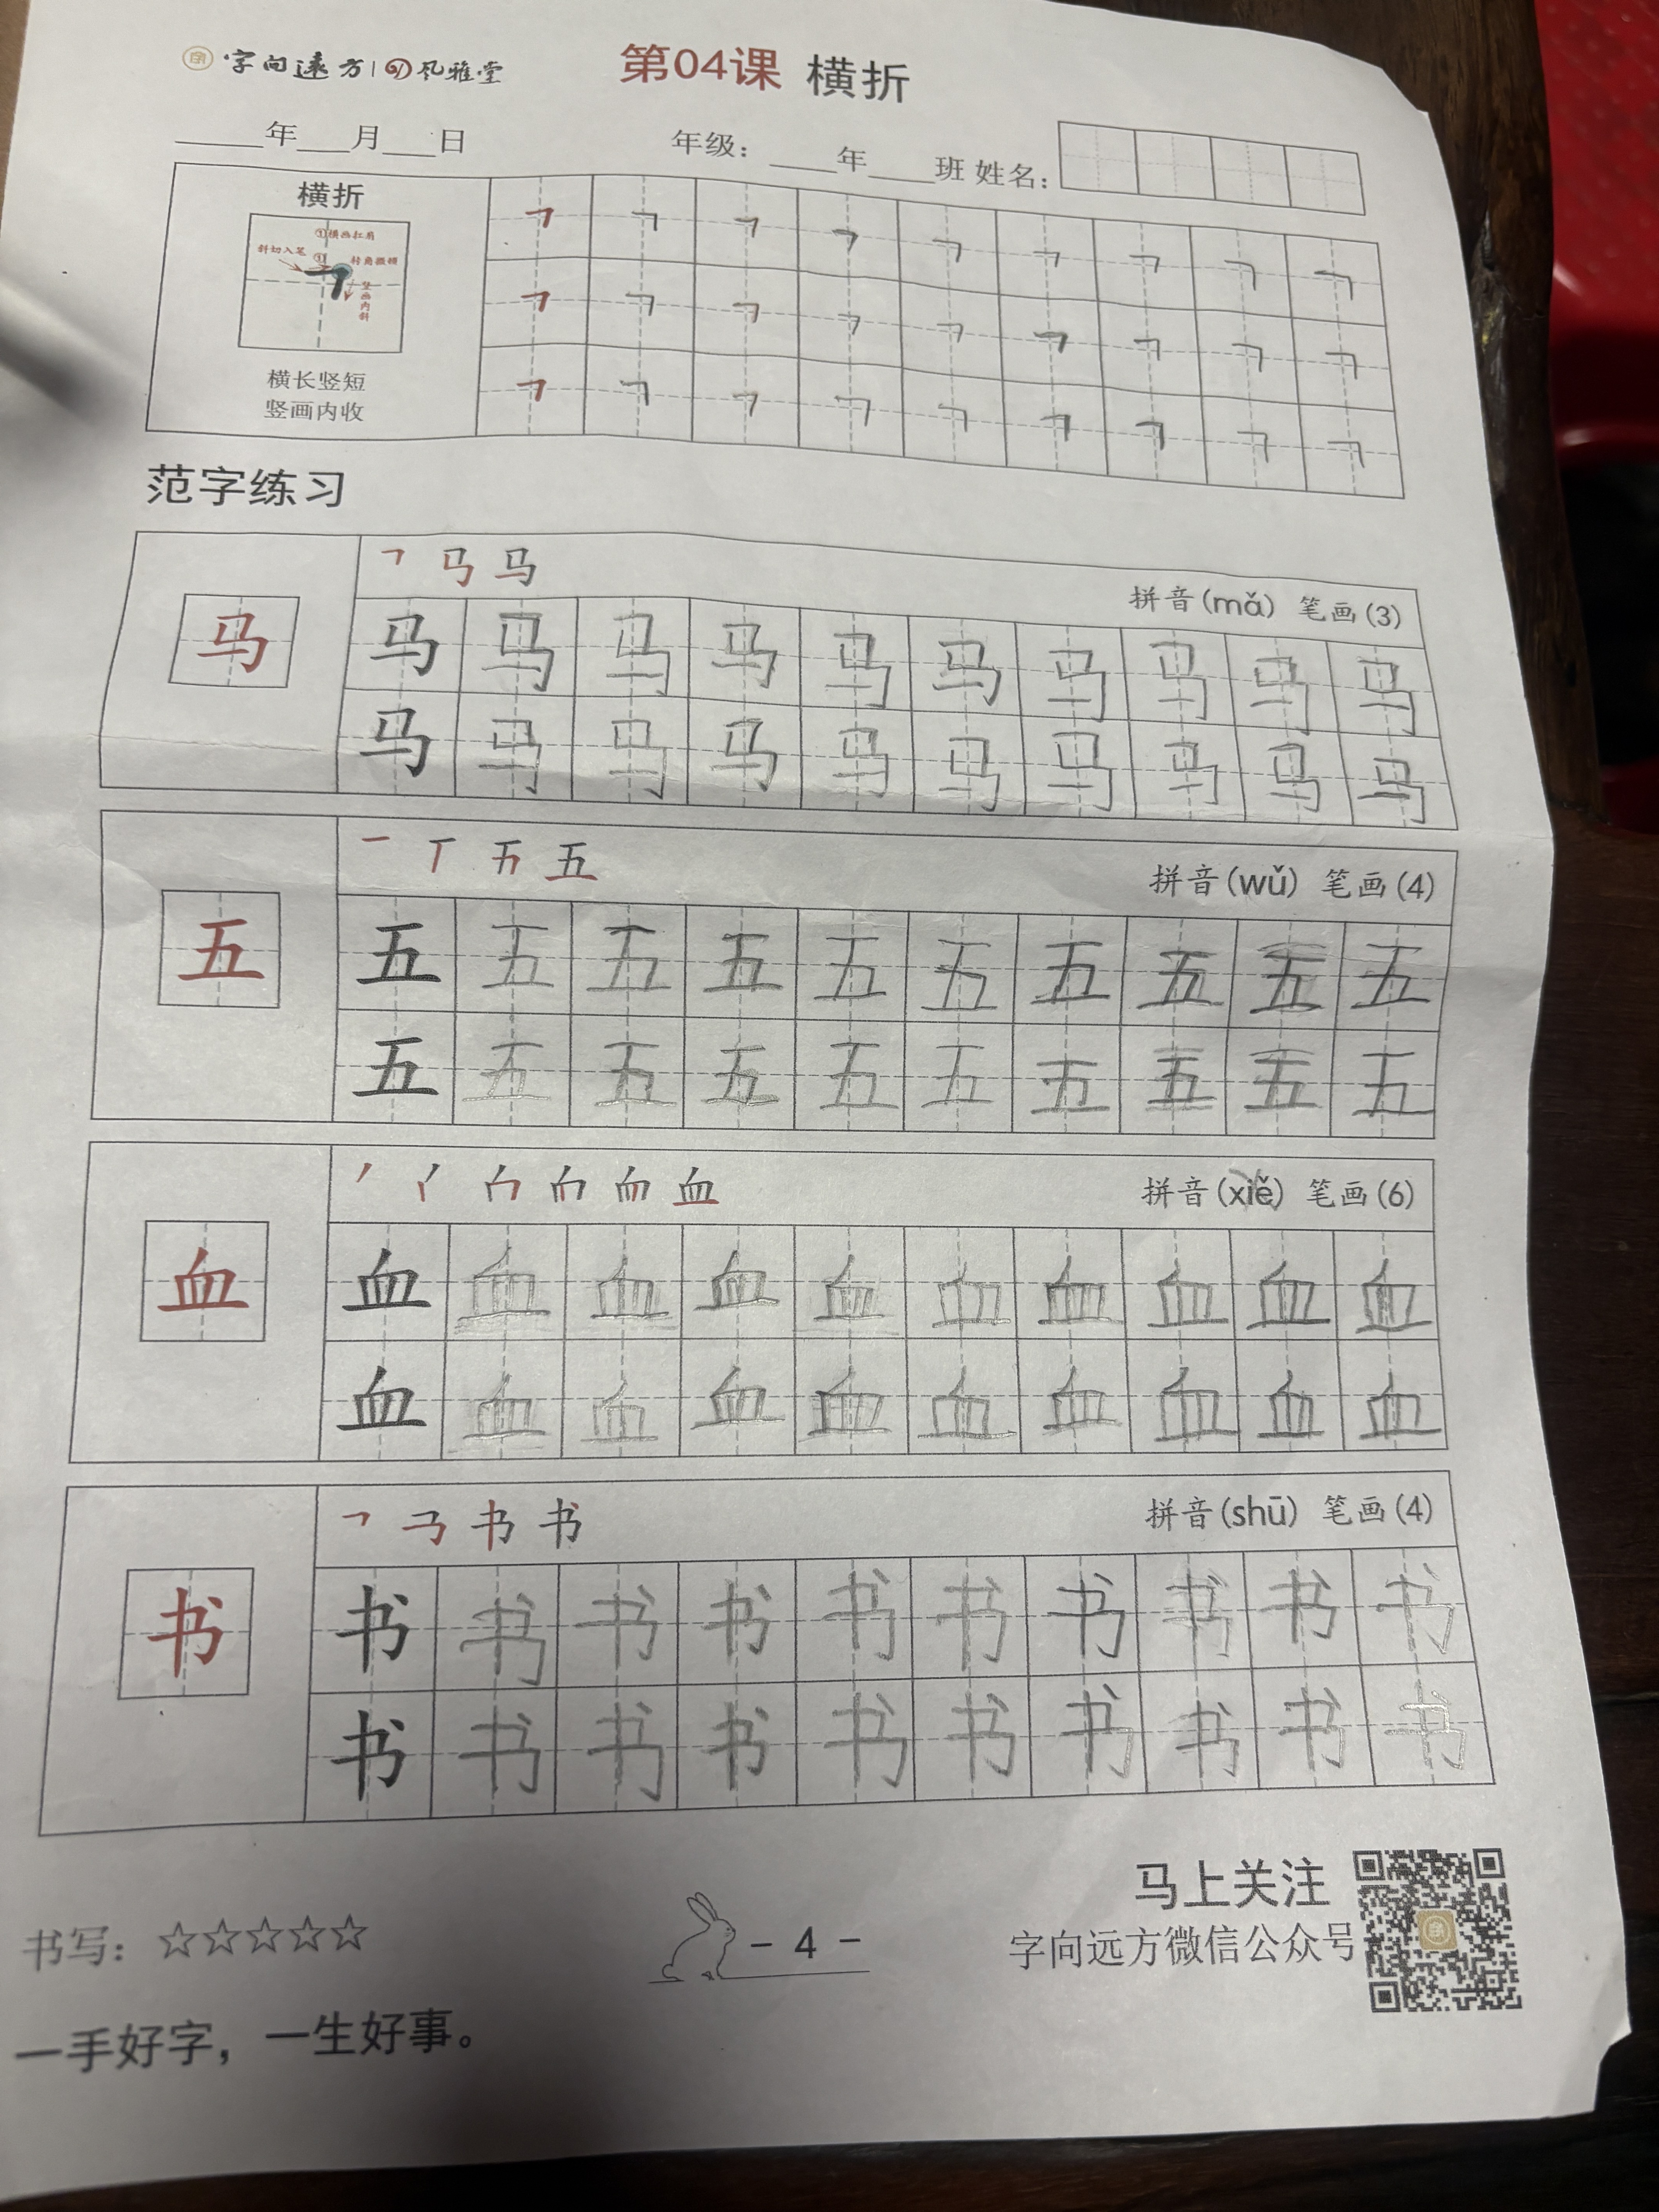 字向远方 | 风雅堂
第04课 横折
年 月 日 年级： 年 班 姓名：
横折
①横画扛肩
斜切入笔
①
转角微顿
竖画内斜
横长竖短
竖画内收
范字练习
马
拼音(mǎ) 笔画(3)
马 马 马 马 马 马 马 马 马 马
马 马 马 马 马 马 马 马 马 马
五
拼音(wǔ) 笔画(4)
五 五 五 五 五 五 五 五 五 五
五 五 五 五 五 五 五 五 五 五
血
拼音(xiě) 笔画(6)
血 血 血 血 血 血 血 血 血 血
血 血 血 血 血 血 血 血 血 血
书
拼音(shū) 笔画(4)
书 书 书 书 书 书 书 书 书 书
书 书 书 书 书 书 书 书 书 书
马上关注
字向远方微信公众号
书写：☆☆☆☆☆
- 4 -
一手好字，一生好事。